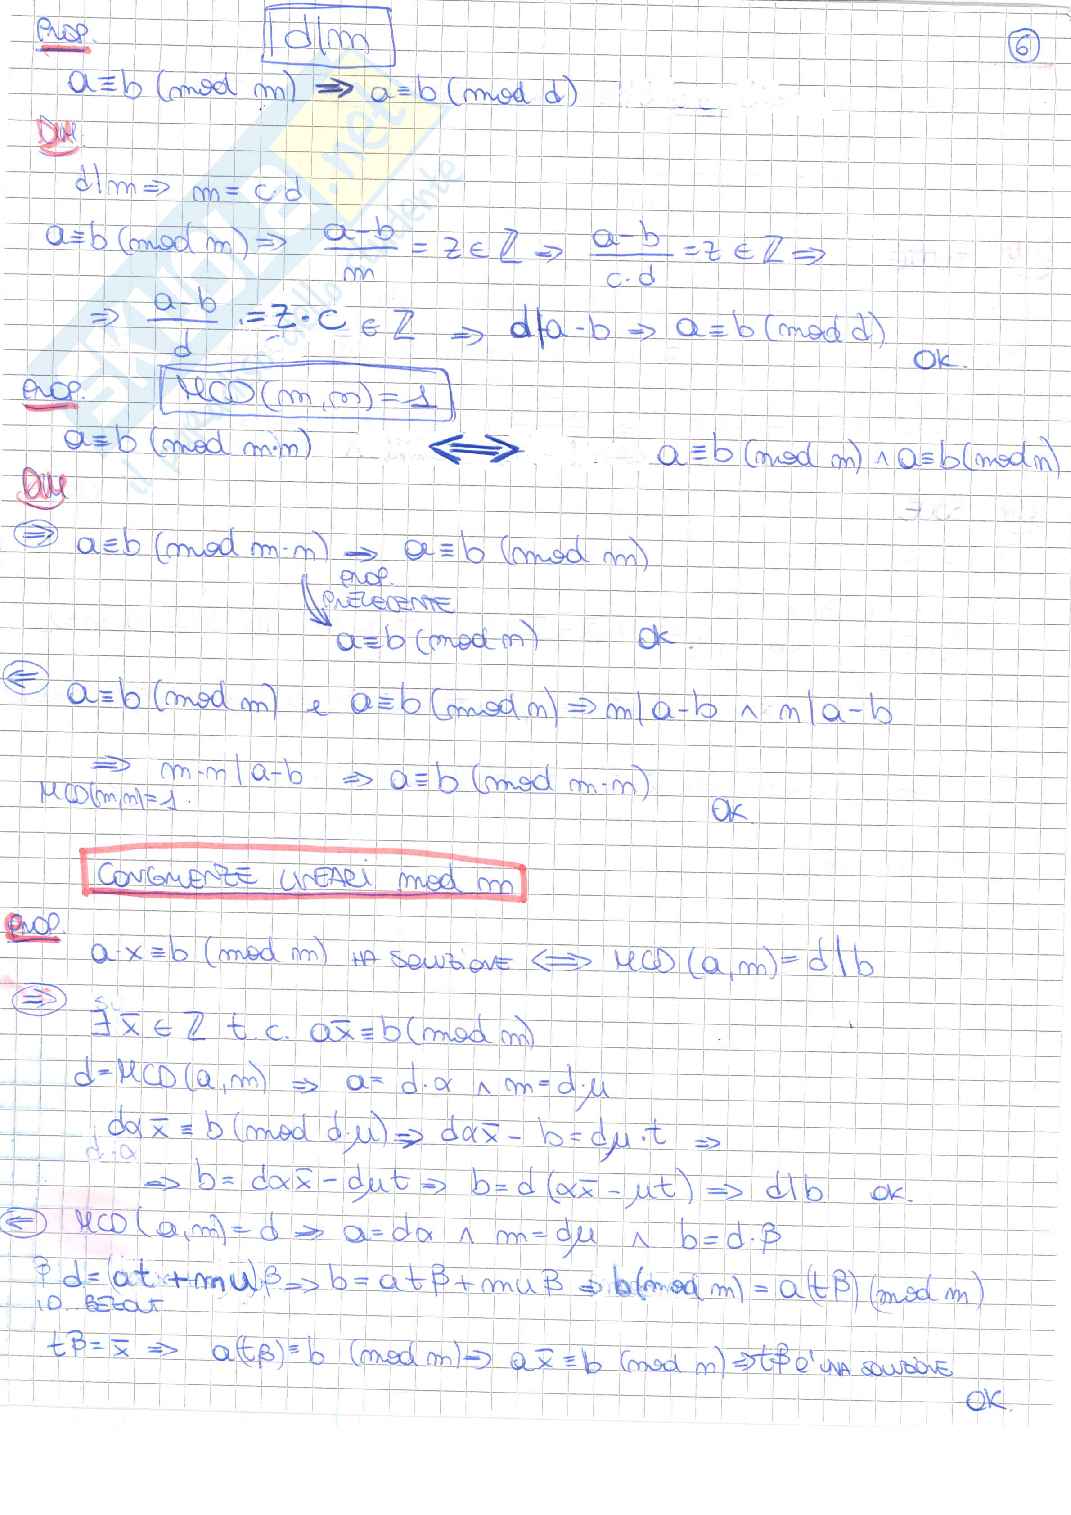 Prop. d|m
6
a≡b (mod m) ⇒ a≡b (mod d)
DIM
d|m ⇒ m = c·d
a≡b (mod m) ⇒ a-b/m = z ∈ ℤ ⇒ a-b/c·d = z ∈ ℤ ⇒
⇒ a-b/d = z·c ∈ ℤ ⇒ d|a-b ⇒ a≡b (mod d)
OK.
PROP. MCD(m,n)=1
a≡b (mod m·n) ⟺ a≡b (mod m) ∧ a≡b (mod n)
DIM
⇒ a≡b (mod m·n) → a≡b (mod m)
PROP.
PRECEDENTE
a≡b (mod n) OK.
⇐ a≡b (mod m) e a≡b (mod n) ⇒ m|a-b ∧ n|a-b
⇒ m·n|a-b ⇒ a≡b (mod m·n)
MCD(m,n)=1.
OK
CONGRUENZE LINEARI mod m
PROP.
a·x≡b (mod m) HA SOLUZIONE ⟺ MCD(a,m)=d|b
⇒ ∃ x̄ ∈ ℤ t.c. ax̄≡b (mod m)
d=MCD(a,m) ⇒ a=d·α ∧ m=d·μ
dαx̄≡b (mod d·μ) ⇒ dαx̄-b=dμ·t ⇒
⇒ b=dαx̄-dμt ⇒ b=d(αx̄-μt) ⇒ d|b OK.
⇐ MCD(a,m)=d ⇒ a=dα ∧ m=dμ ∧ b=d·β
β d=(at+mu)β ⇒ b=atβ+muβ ⇒ b(mod m)=a(tβ)(mod m)
ID. BEZOUT
tβ=x̄ ⇒ a(tβ)≡b (mod m) ⇒ ax̄≡b (mod m) ⇒ tβ è UNA SOLUZIONE
OK.